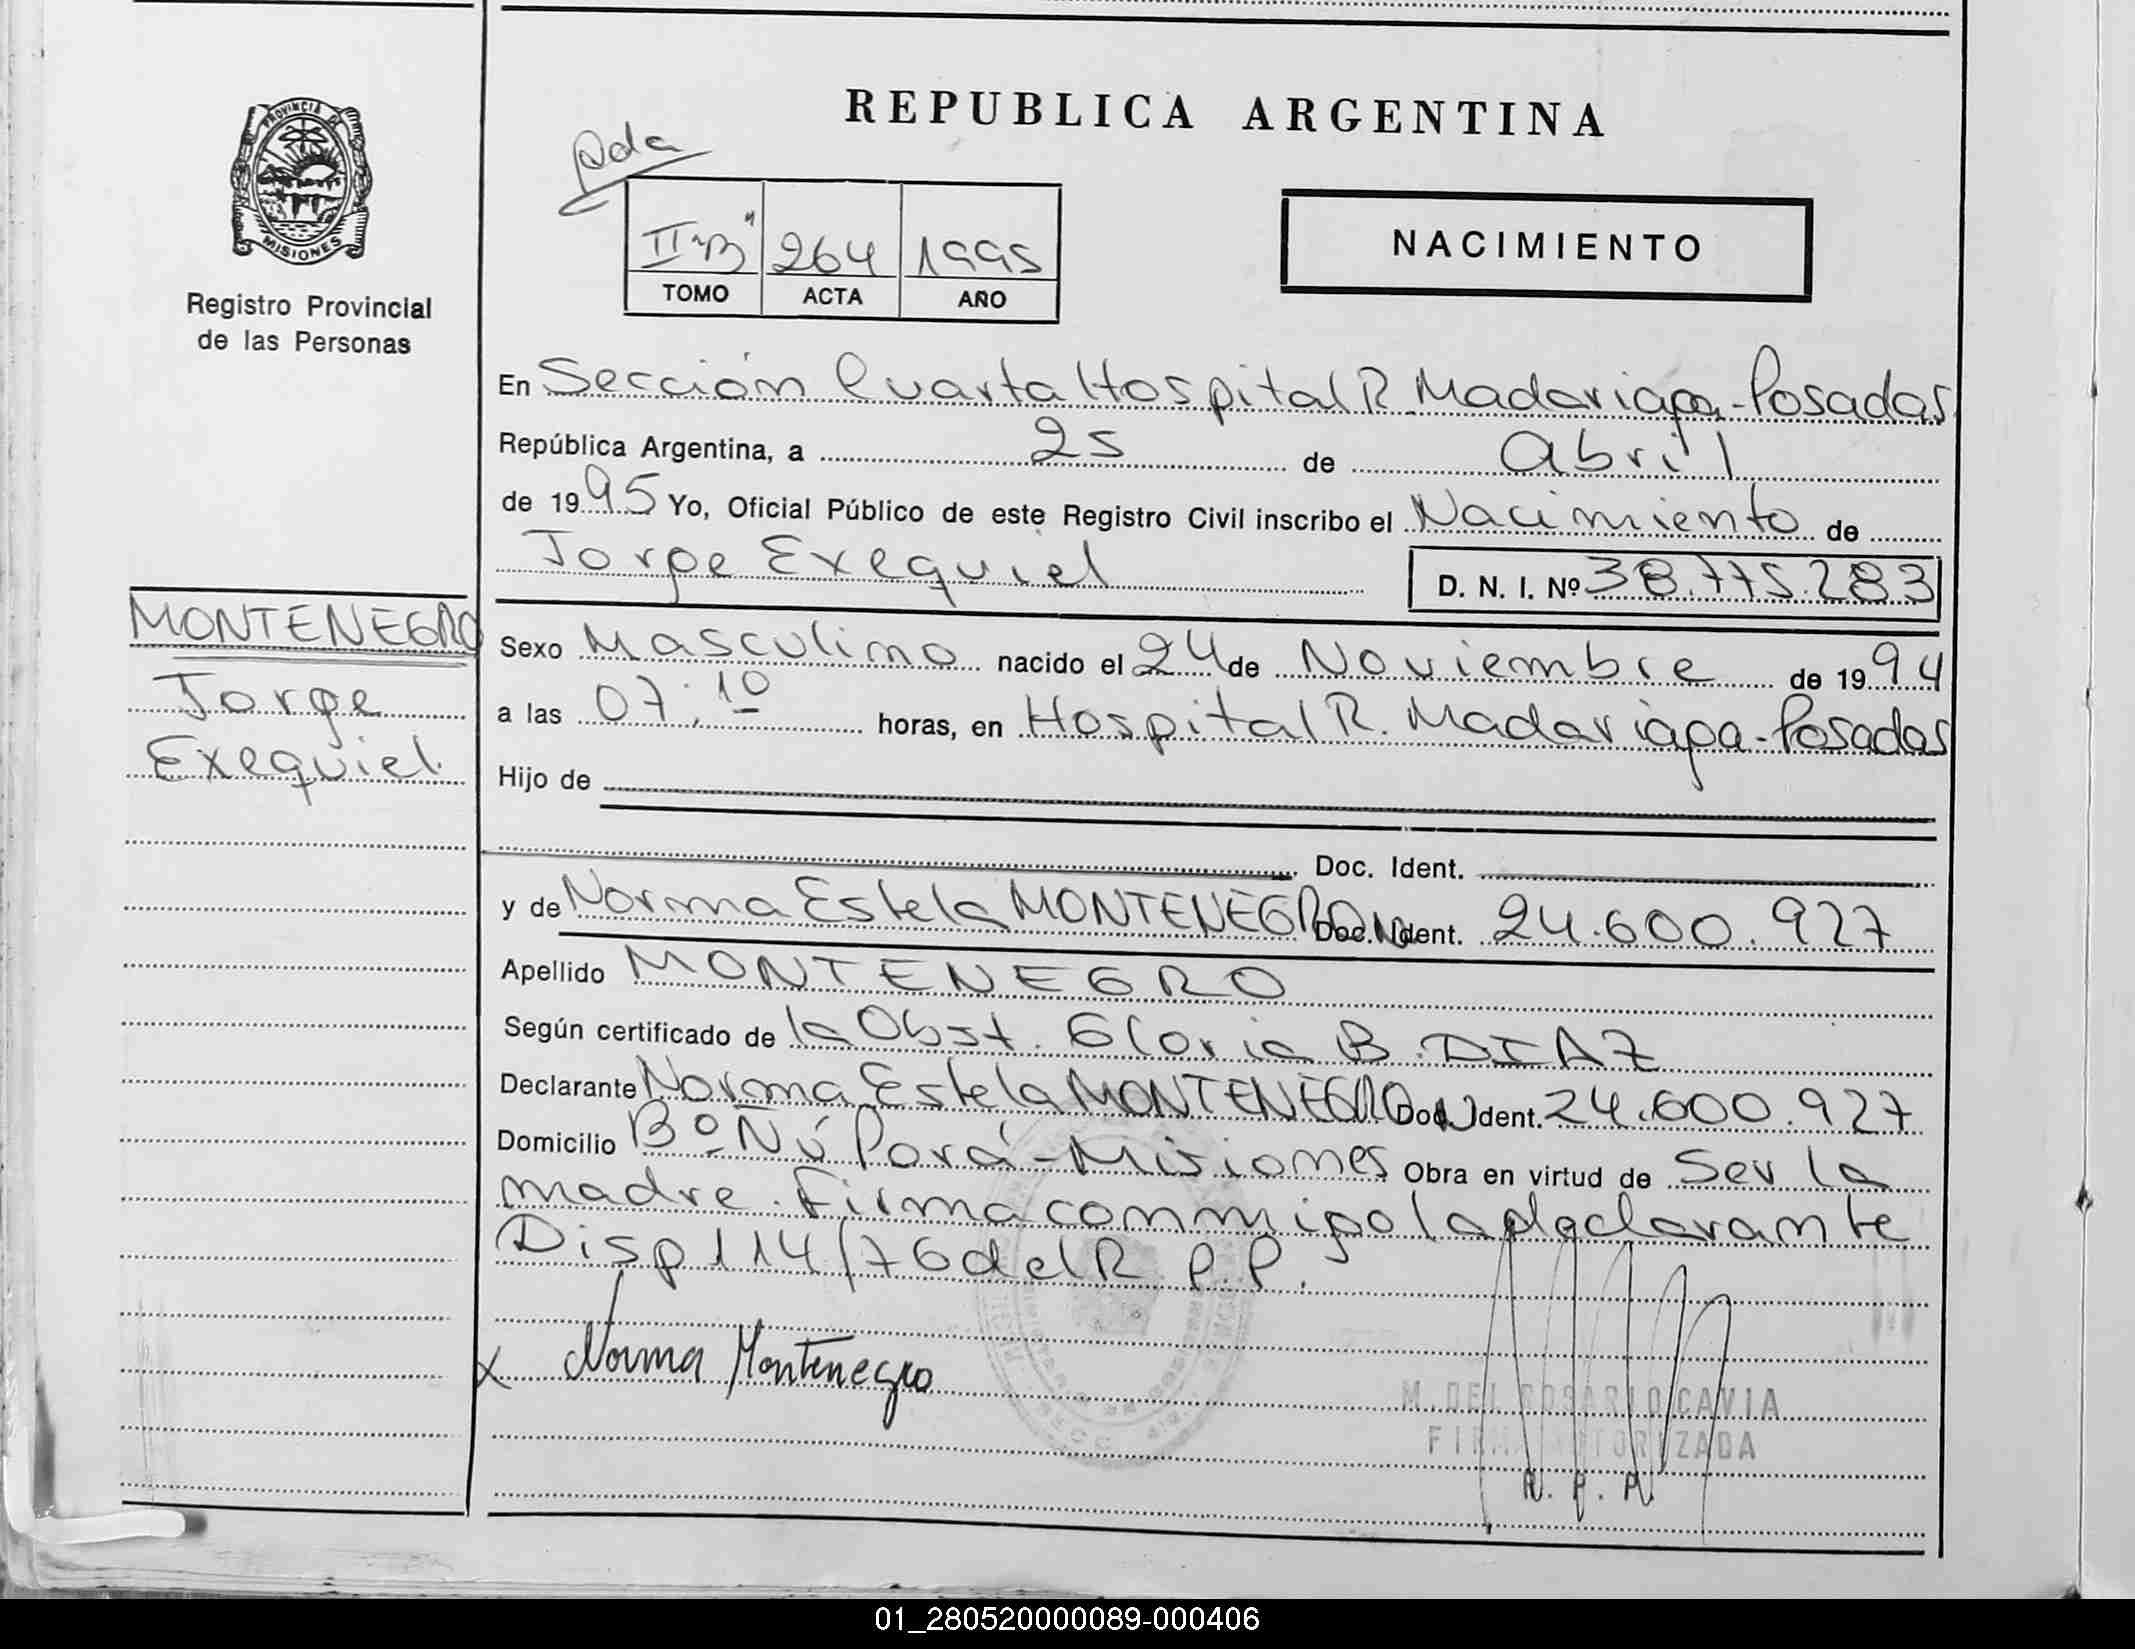 REPUBLICA ARGENTINA
Pda
PROVINCIA DE
MISIONES
II "B" 264 1995
TOMO ACTA AÑO
NACIMIENTO
Registro Provincial
de las Personas
En Sección Cuarta Hospital R. Madariaga - Posadas
República Argentina, a 25 de abril
de 1995 Yo, Oficial Público de este Registro Civil inscribo el Nacimiento de
Jorge Exequiel D. N. I. Nº 38.775.283
MONTENEGRO
Jorge
Exequiel.
Sexo Masculino nacido el 24 de Noviembre de 1994
a las 07:10 horas, en Hospital R. Madariaga - Posadas
Hijo de
Doc. Ident.
y de Norma Estela MONTENEGRO Doc. Ident. 24.600.927
Apellido MONTENEGRO
Según certificado de la Obst. Gloria B. DIAZ
Declarante Norma Estela MONTENEGRO Doc. Ident. 24.600.927
Domicilio Bº Ñú Porá - Misiones Obra en virtud de Ser la
madre. Firma conmigo la declarante
Disp 114/76 del R P.P.
x Norma Montenegro
M. DEL ROSARIO CAVIA
FIRMA AUTORIZADA
R. P. P.
01_280520000089-000406